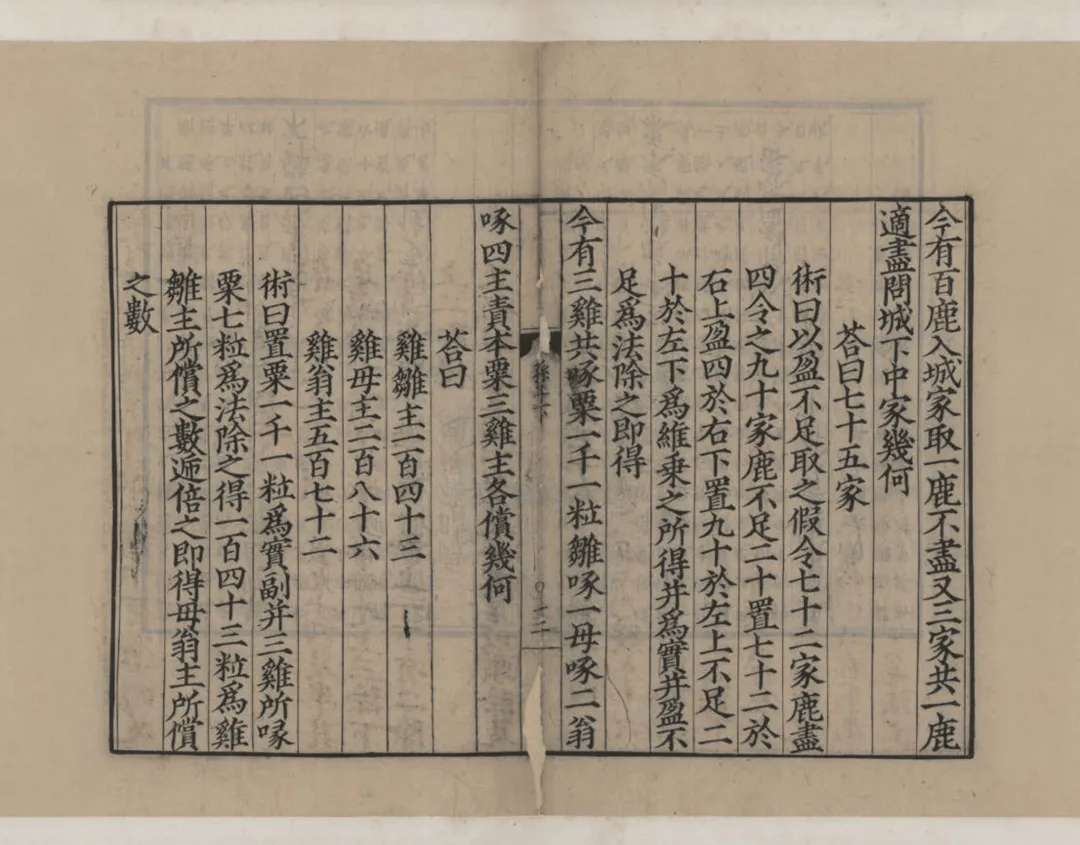 今有百鹿入城家取一鹿不盡又三家共一鹿
適盡問城下中家幾何
荅曰七十五家
術曰以盈不足取之假令七十二家鹿盡
四令之九十家鹿不足二十置七十二於
右上盈四於右下置九十於左上不足二
十於左下爲維乗之所得并爲實并盈不
足爲法除之即得
今有三雞共啄粟一千一粒雛啄一母啄二翁
啄四主責本粟三雞主各償幾何
荅曰
雞雛主一百四十三
雞母主二百八十六
雞翁主五百七十二
術曰置粟一千一粒爲實副并三雞所啄
粟七粒爲法除之得一百四十三粒爲雞
雛主所償之數遞倍之即得母翁主所償
之數